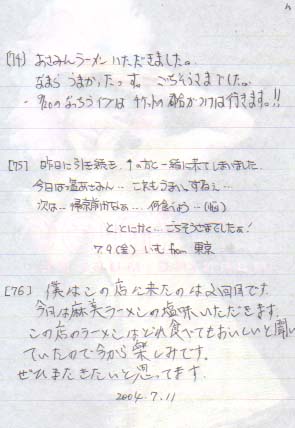 [74] あさみんラーメンいただきました。
なまら うまかったっす。 ごちそうさまでした。
[75] 昨日に引き続き、↑の方と一緒に来てしまいました
今日は塩あさみん… これもうまいっすねぇ…
次は… 帰京前かなぁ… 何食べよう…(悩)
と、とにかく… ごちそうさまでしたぁ!
7.9(金) いも from 東京
[76] 僕はこの店に来たのは2回目です。
今日は麻美ラーメンの塩味いただきます。
この店のラーメンはどれ食べてもおいしいと聞い
ていたので今から楽しみです。
ぜひまたきたいと思ってます。
2004.7.11